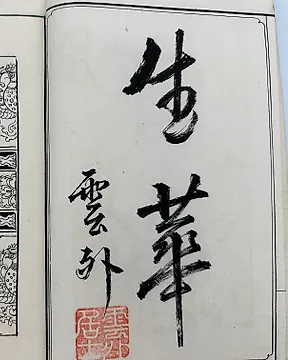 生華
雲外